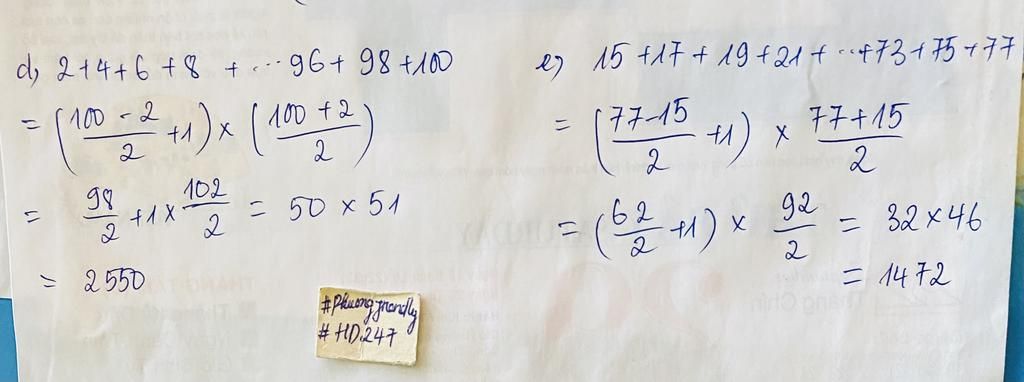 d, 2+4+6+8 + ... 96+ 98+100
= ((100-2)/2 +1) × ((100+2)/2)
= 98/2 +1 × 102/2 = 50 × 51
= 2550
e, 15+17+19+21+...+73+75+77
= ((77-15)/2 +1) × (77+15)/2
= (62/2 +1) × 92/2 = 32×46
= 1472
#HD.247